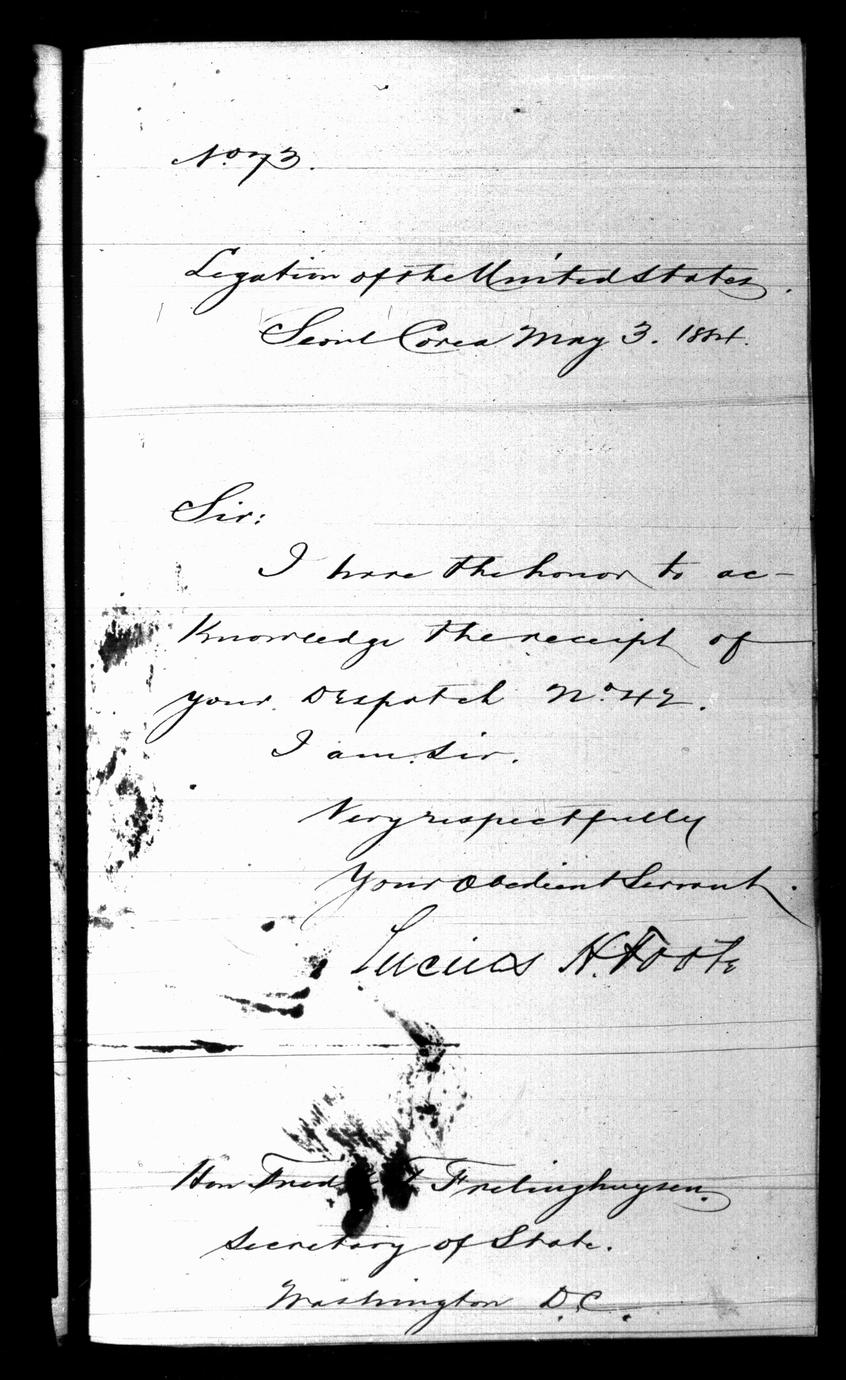 No 73.
Legation of the United States.
Seoul Corea May 3. 1884.
Sir:
I have the honor to ac-
knowledge the receipt of
your Despatch No. 42.
I am Sir.
Very respectfully
Your Obedient Servant.
Lucius H. Foote
Hon Fred T Frelinghuysen.
Secretary of State.
Washington D.C.